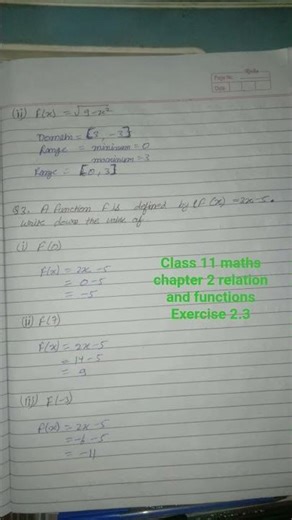 Page No.
Date
(ii) F(x) = √9-x²
Domain = [3, -3]
Range = minimum = 0
maximum = 3
Range = [0, 3]
Q3. A function f is defined by f(x) = 2x-5.
write down the value of
(i) F(0)
F(x) = 2x -5
= 0-5
= -5
Class 11 maths
chapter 2 relation
and functions
Exercise 2.3
(ii) F(7)
F(x) = 2x-5
= 14-5
= 9
(iii) F(-3)
F(x) = 2x-5
= -6 -5
= -11